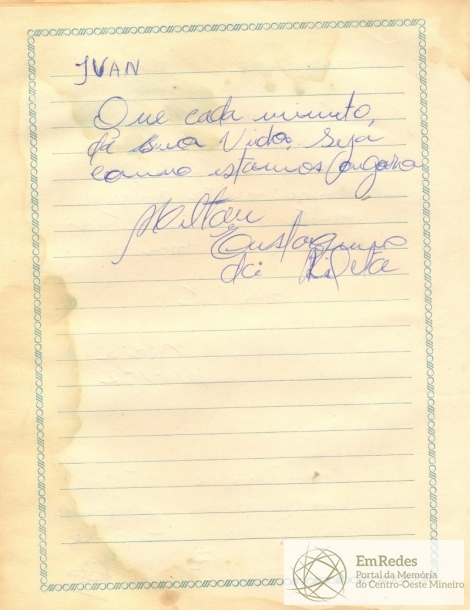 IVAN
Que cada minuto,
da sua Vida, seja
como estamos agora
Milton
Eustaquio
da Silva
EmRedes
Portal da Memória
do Centro-Oeste Mineiro